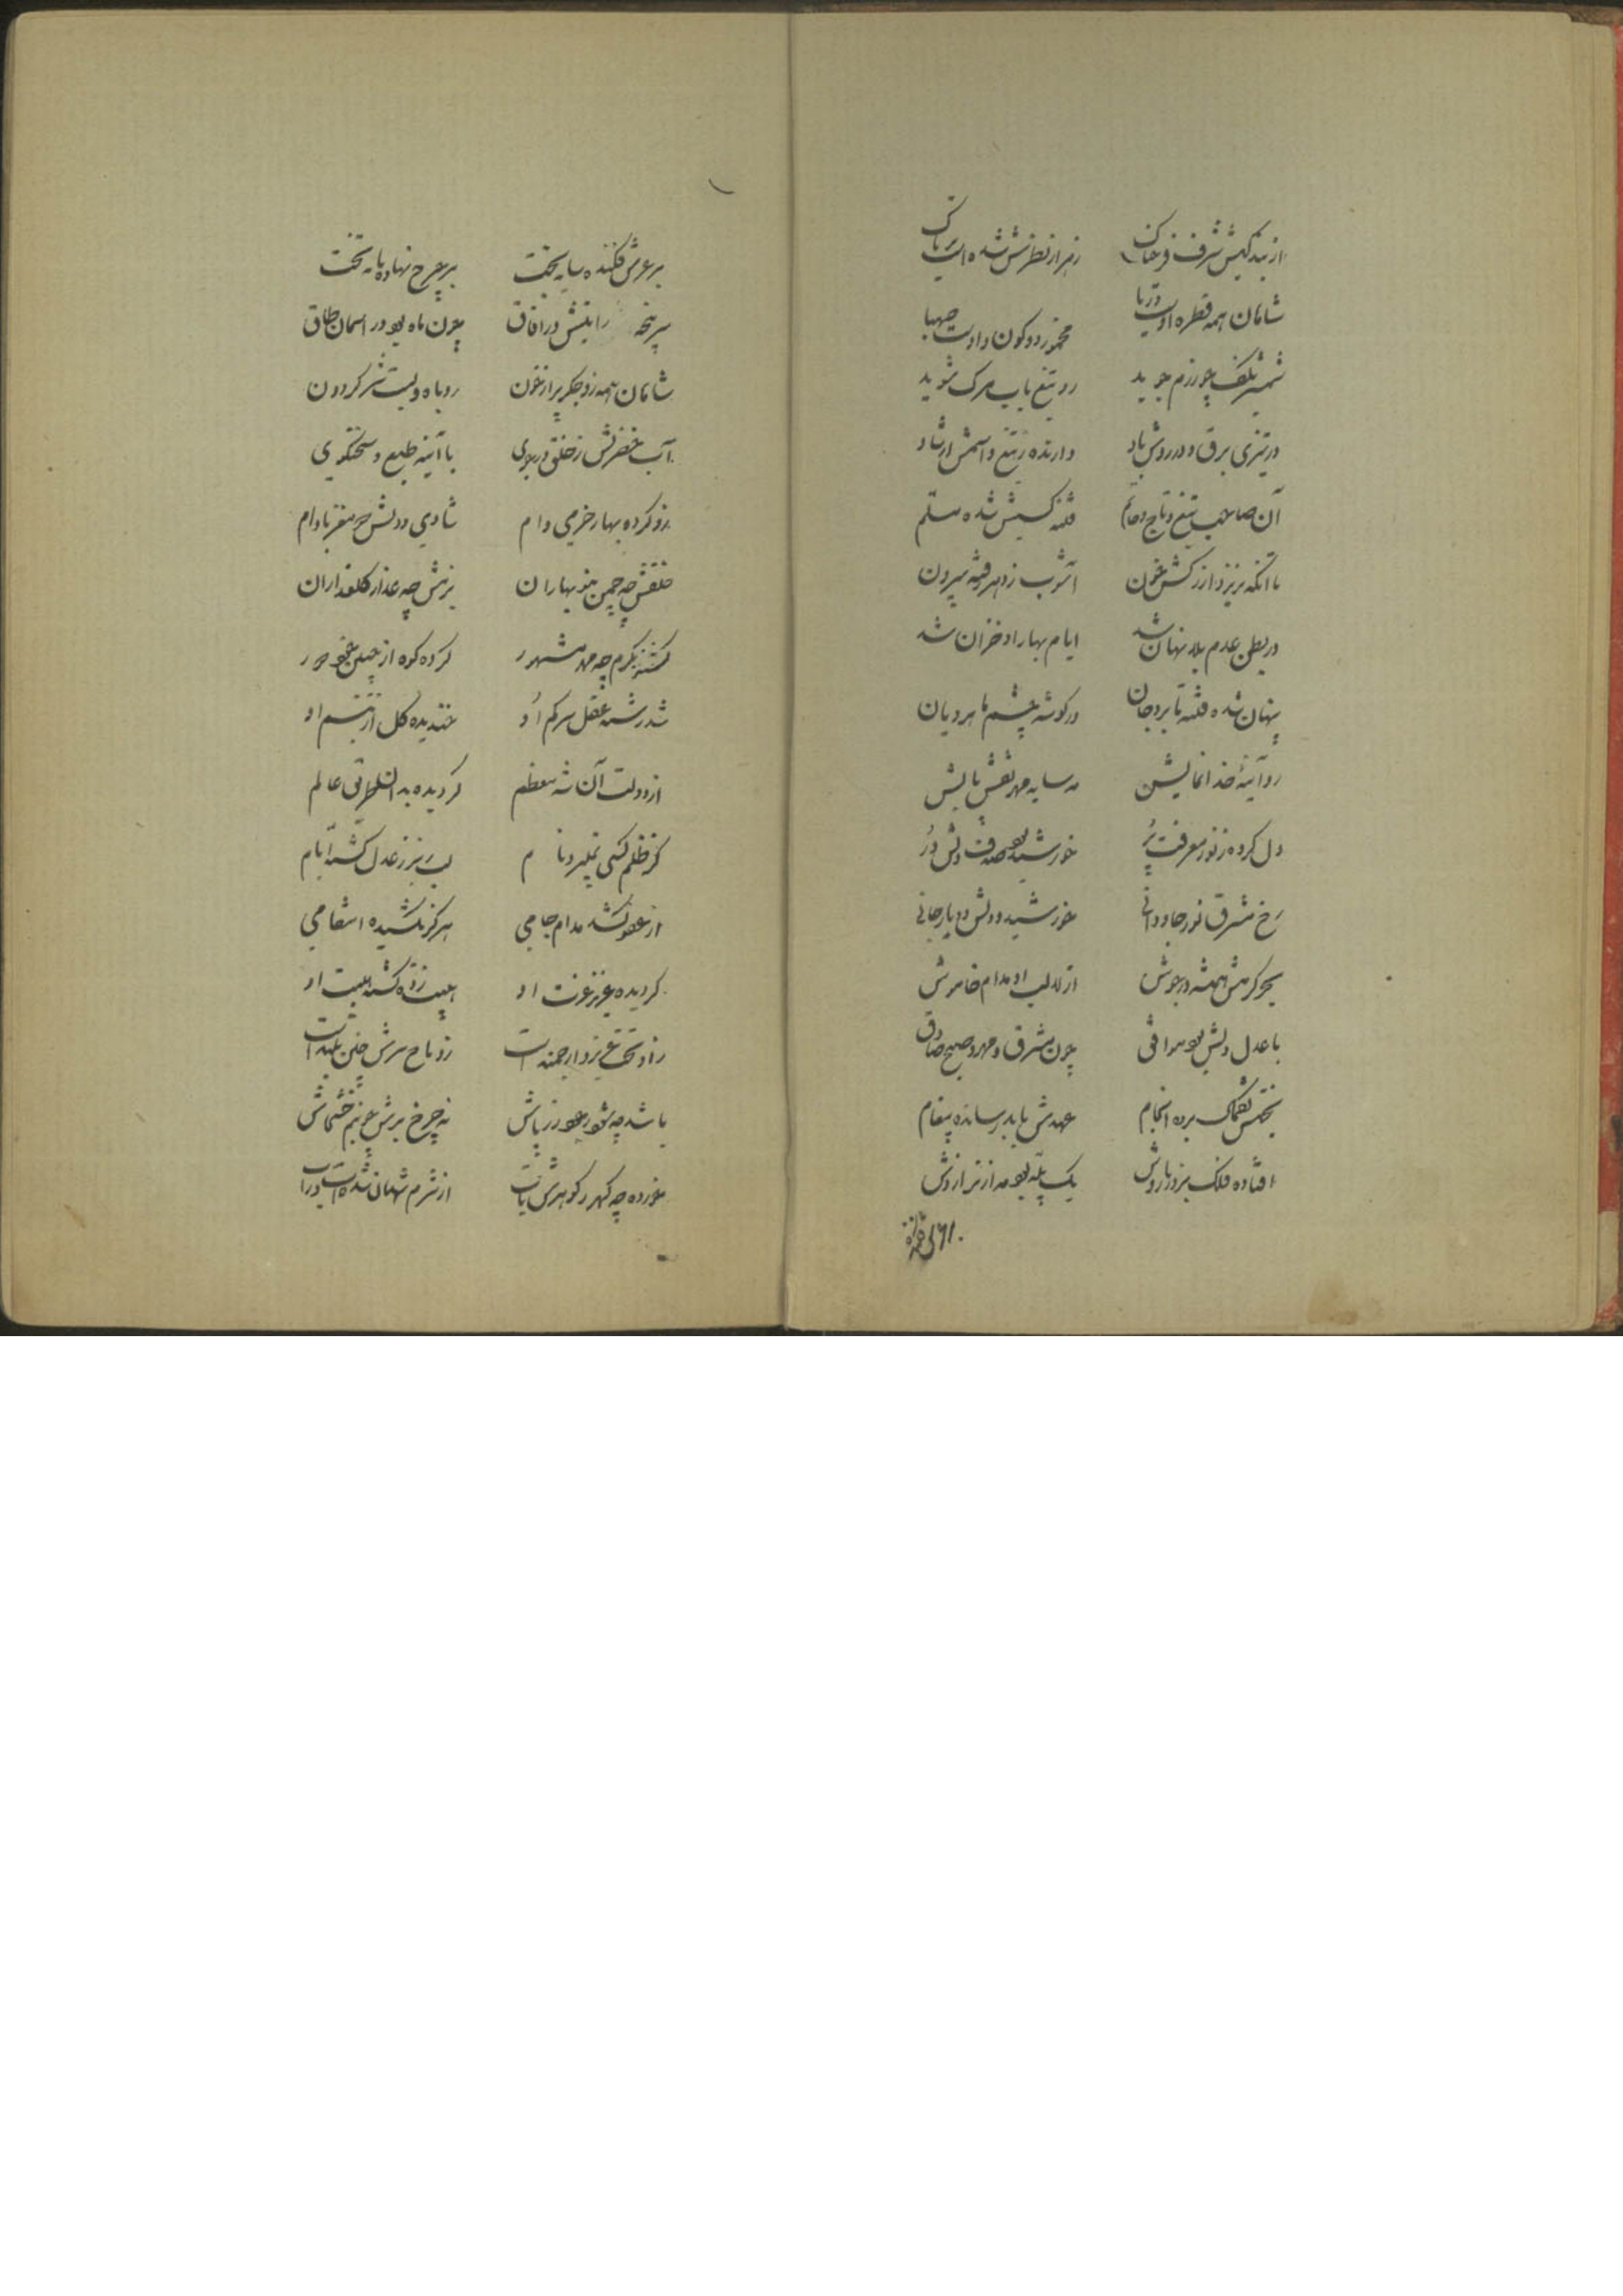 از بندگیش شرف خاک زهر از نظرش شده است تریاک
شاهان همه قطره اوست دریا مخمور دو کون و اوست صهبا
شمشیر بکف چو رزم جوید رو تیغ بآب مرگ شوید
در تیزی برق و در روش باد دارنده تیغ و اسمش ارشاد
آن صاحب تیغ و تاج و خاتم شده مسلم
با آنکه بریزد از خون آشوب ز دهر رفته بیرون
در بطن عدم بلا نهان شد ایام بهار او خزان شد
پنهان شده فتنه تا برد جان در گوشه چشم ماهرویان
رو آینهٔ خدا نمایش مه سایه مهر نقش پایش
دل کرده ز نور معرفت پُر خورشید بود صدف دلش دُر
رخ مشرق نور جاودانی خورشید دلش
بحر کرمش همیشه در جوش از لالب او مدام خاموش
با عدل دلش بود موافق چون مشرق و مهر و صبح صادق
برده انجام عهدش بابد رسانده پیغام
افتاده فلک بزور بازوش یک پله بود مه از ترازوش
بر عرش فکنده سایه بخت بر چرخ نهاده پایه تخت
سرپنجه رایتش در آفاق چون ماه بود در آسمان طاق
شاهان همه زو جگر پر از خون روباه ویست شیر گردون
آب خضرش ز خلق در جوی با آینه طبع و سخنگوی
زو کرده بهار خرمی وام شادی و دلش چو مغز بادام
خلقش چه چمن بنوبهاران بزمش چه عذار گلعذاران
گشته بکرم چه مهر مشهور کرده گره از جبین خود دور
شد رشته عقل سرکم او خندیده گل از تبسم او
از دولت آن شه معظم گردیده عالم
کز ظلم کسی نمیبرد نام لبریز ز عدل گشته ایام
از عفو کشد مدام جامی هرگز نکشیده انتقامی
گردیده عزیز عزت او هیبت زده گشته هیبت او
زو تخت عزیز و ارجمند است زو تاج سرش چنین بلند است
باشد چه بخشش
خورده چه گهر ز گوهرش تاب از شرم شده است